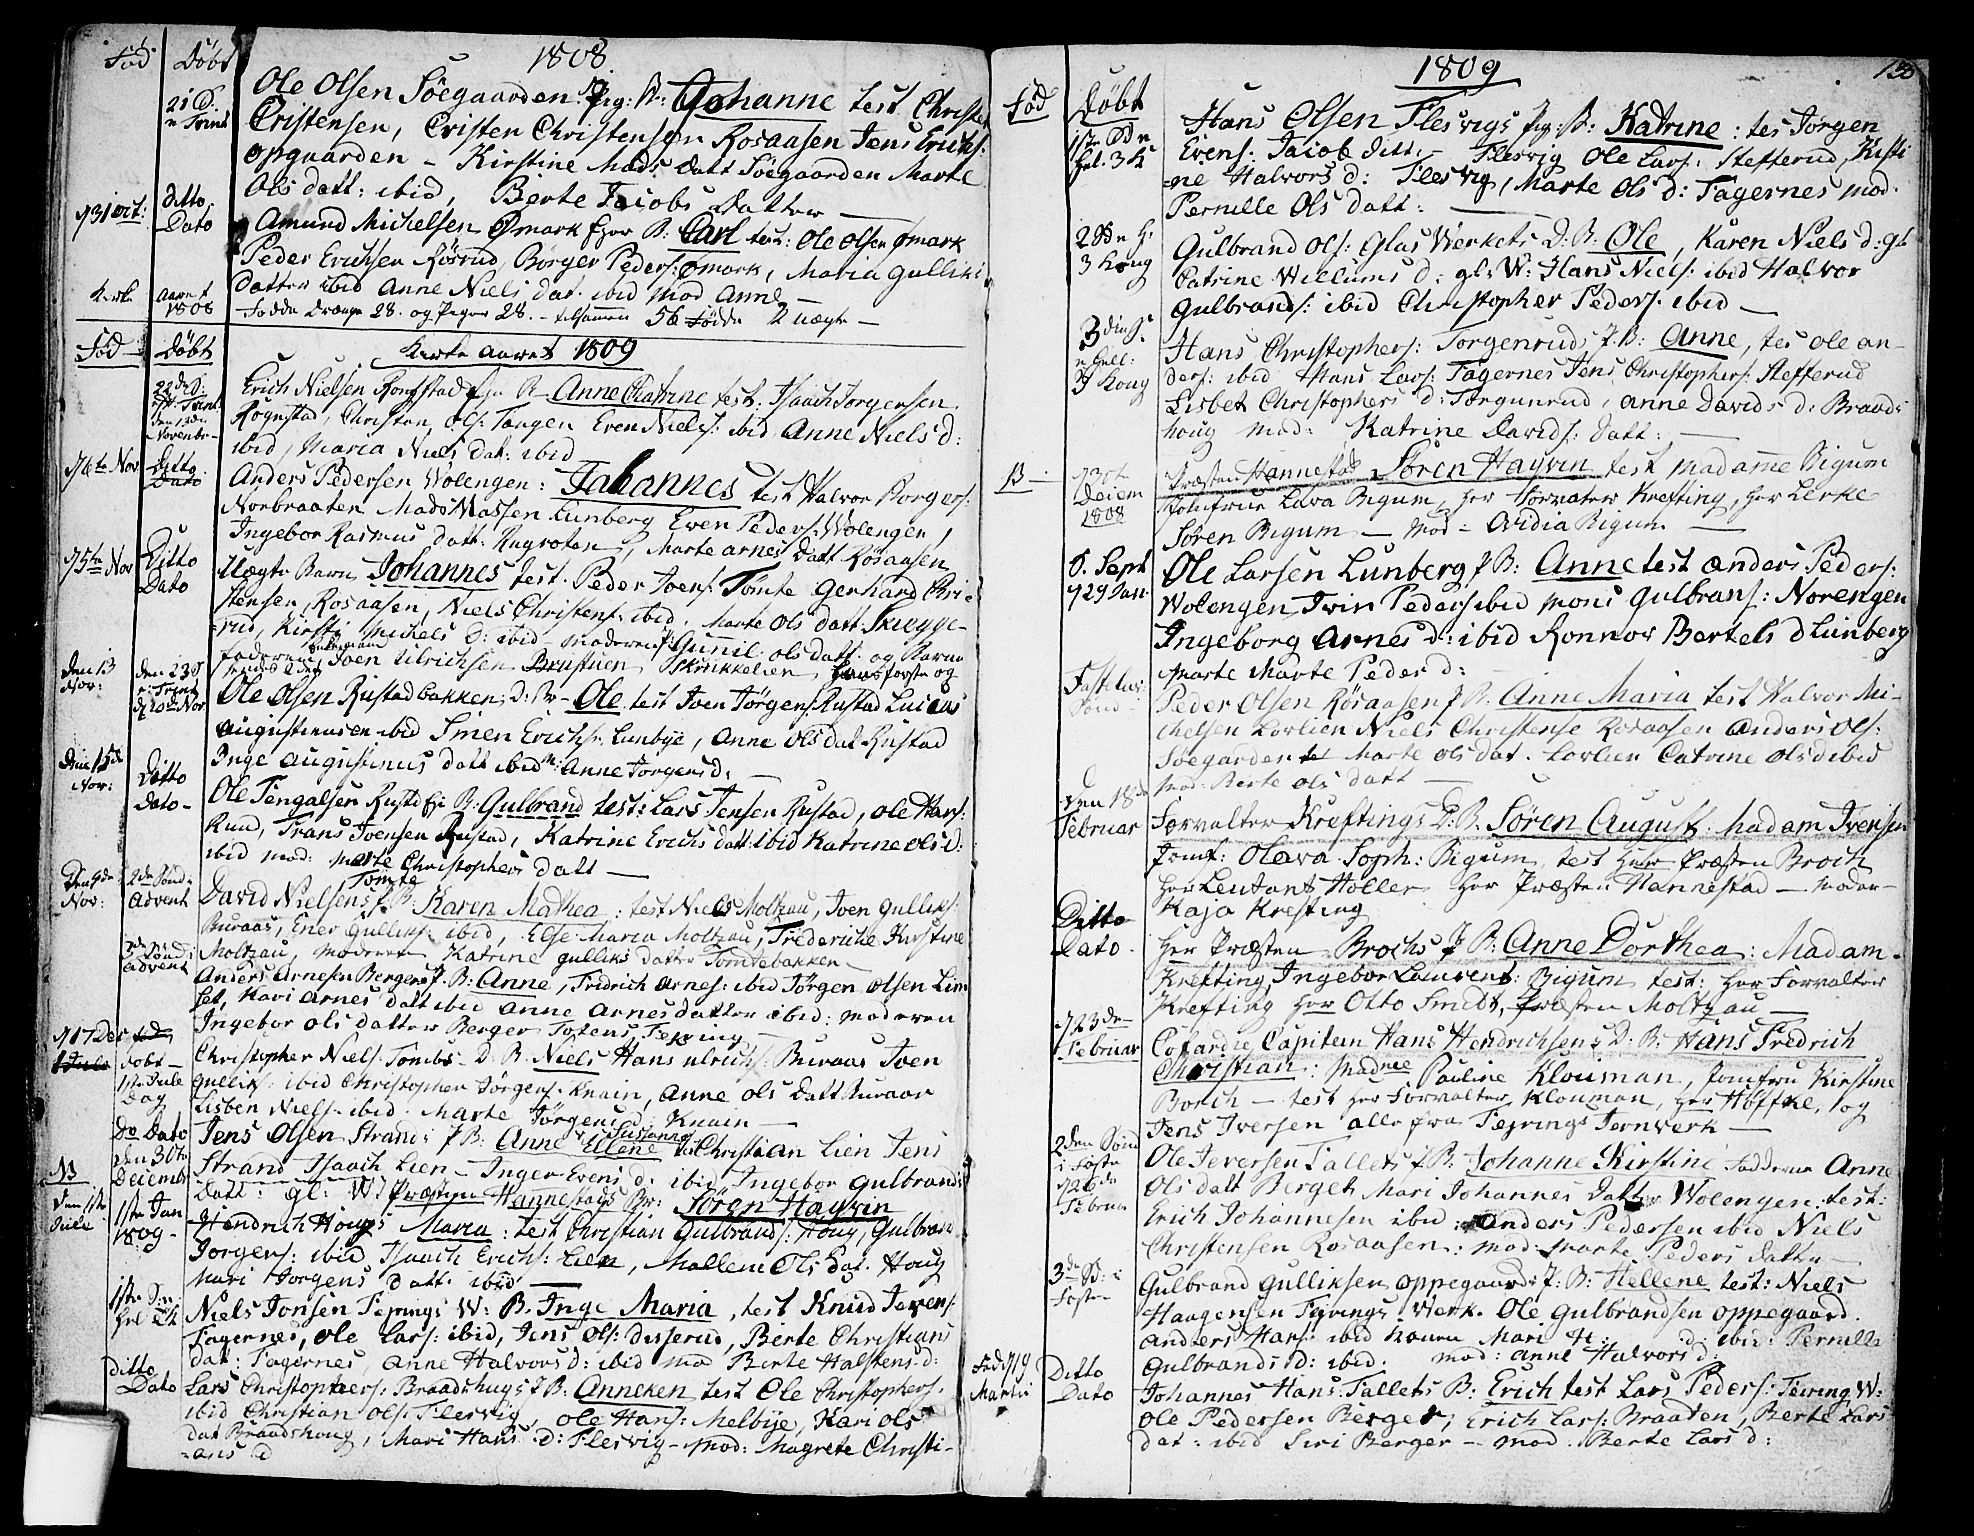 Fød Døbt 1808
21 S. n Trinit
Ole Olsen Söegaarden Pig: B: Johanne test Christe
Cristensen, Cristen Christensen Rosaasen Jens Erichs:
opgaarden - Kirstine Mads datt Söegaarden Marte
Ols datt: ibid, Berte Jacobs Datter —
731 oct: ditto Dato
Amund Michelsen Ømark B: Carl test: Ole Olsen Ømark
Peder Erichsen Rörrud, Börger Peders: Ømark, Maria Gulliks
datter ibid Anne Niels dat. ibid mod Anne —
Kirke Aaret 1808
Födde Drænge 28. og Piger 28. - tilsammen 56 Födde 2 uægte —
Fød Døbt Kirke Aaret 1809
22de S: Trinit: Den 13de Novenbr
Erich Nielsen Rognstad B - Anne Chatrine test. Isaach Jorgensen
Rognstad, Christen Ols: Tangen Even Niels: ibid Anne Niels d:
ibid, Maria Niels dat: ibid
76te Nov Ditto Dato
Anders Pedersen Wolengen: Johannes test Halvor Borgers:
Norbraaten Mads Massen Lunberg Even Peders: Wolengen,
Ingebor Rasmus datt: Ragroten, Marte Arnes Datt Rösaasen
75te Nov Ditto Dato
Uægte Barn Johannes test. Peder Ivers: Tömte Gerhard Chri-
stensen, Rosaasen, Niels Christens: ibid, Marte Ols datt: Skiegge-
rud, Kirsti Michels D: ibid moderen Gunnil Ols datt: og Barne
faderen Iven Ulrichsen Brustuen Skrikkelien
Den 13 Nov: den 23 S n: Trinit d 20de Nov
Ole Olsen Rustadbakken D: B - Ole test Iven Jörgens: Rustad Lucas
Augustinusen ibid Simen Erichs: Lunbye, Anne Ols dat Rustad
Inge Augustinus datt ibid m: Anne Jorgens d: —
Den 15de Nov: Ditto Dato -
Ole Fengalsen Rustd B: Gulbrand test: Lars Jensen Rustad, Ole Hans:
Rud, Frans Ivensen Rustad, Katrine Erichs datt ibid Katrine Ols d:
ibid mod: Marte Christophers datt —
Den 9de Nov: 2den Sønd. Advent
Tömte
David Nielsens P B: Karen Mathea: test Niels Moltzau, Iven Gulliks:
Buraas, Ener Gulliks: ibid, Else Maria Moltzau, Frederiche Kirstine
Moltzau, Moderen Katrine Gulliks datter Tomtebakken —
3de Sønd: Advent
Anders Arnesen Bergers P. B: Anne, Fridrich Arnes: ibid Jörgen Olsen Lim
set, Kari Arnes datt ibid Anne Arnes datter ibid: moderen
Ingebor Ols datter Berger
717 Des Døbt - 1ste Jule Dag
Christopher Niels: Tombs D. B. Niels Hans Ulrichs: Buraas Iven
Gulliks: ibid Christopher Jörgens: Knain, Anne Ols Datt Buraas
Lisben Niels: ibid. Marte Jörgens d: Knain —
Do Dato
Jens Olsen Strands P B: Anne Ellene Susanne test Christian Lien Jens
Strand Isaach Lien - Inger Evens d: ibid, Ingebor Gulbrands
Datt: gl: W:
NB Den 30te Deiembr
Præsten Hannestads Br: Sören Hayvin
1ste Jan 1809 -
Hendrich Hougs Maria: test Christian Gulbrands: Houg, Gulbran
Jorgens: ibid Isaach Erichs: Lien, Mallene Ols dat. Houg
Mari Jorgens datt: ibid —
Niels Jonsen Fejrings W: B. Inge Maria, test Knud Ivers:
Fagernes, Ole Lars: ibid, Jens Ols: disserud, Berte Christians
dat: Fagernes, Anne Halvors d: ibid mod Berte Halstens d:
ditto Dato
Lars Christophers: Braadshugs P B: Anneken test Ole Christophers.
ibid Christian Ols: Flesvig, Ole Hans: Melbye, Kari Ols
dat Braadshoug, Mari Hans d: Flesvig - Mod: Magrete Christi-
-ans d
1809 150
Fød Døbt
Hans Olsen Flesvigs Pig: B: Katrine: tes Jörgen
Evens: Jaiob ditt. - Flesvig Ole Lars: Stefferud, Kisti
=ne Halvors d: Flesvig, Marte Ols d: Fagernes mod.
Pernille Ols datt: —
2 S n H: 3 Kong
Gulbrand Ols: Glas Werkets D: B: Ole, Karen Niels d: gl
Catrine Willums d: gl: W: Hans Niels: ibid Halvor
Gulbrands: ibid Christopher Peders: ibid —
Hans Christophers: Torgenruds P. B: Anne, tes Ole an-
ders: ibid Hans Lars: Fagernes Jens Christophers: Stefferud
Lisbet Christophers d: Torgunrud, Anne Davids d: Braads
houg mod: Katrine Davids: datt: —
B - 730te Deiem 1808
Præsten Hannestad Sören Hayvin test Madamme Bigum
Jomfrue Lava Bigum, Her Forvalter Krefting, Her Lerke
Sören Bigum — Mod - Ovidia Bigum. —
S. Sept 729 Jan.
Ole Larsen Lunberg P B: Anne test Anders Peders:
Wolengen Iver Peders ibid Mons Gulbrans: Norengen
Ingeborg Arnes d: ibid Ronnov Bertels d Lunberg
Marte Marte Peder d:
Fastelav: Sønd -
Peder Olsen Rösaasen P B. Anne Maria test Halvor Mi-
chelsen Lovlien Niels Christense Rosaasen Anders Ols:
Söegarden Marte Ols dat. Lovlien Catrine Ols d ibid
Mod: Berte Ols datt —
den 18de Februar
Forvalter Kreftings D: B. Sören August: Madam Ivensen
Jomf: Olava Soph: Bigum, test Herr Præsten Broch
Her Leutant Holler Her Præsten Hannestad — Moder -
Kaja Krefting
Ditto Dato.
Her Præsten Brochs P B: Anne Dorthea: Madam.
Krefting, Ingebor Laurent: Bigum test: Her Forvalter
Krefting Her Otto Smidt, Præsten Moltzau —
723de Februar
Cofardie Capitein Hans Hendrichsens D: B: Hans Fredrich
Christian: Madmee Pauline Klouman, Jomfru Kirstine
Borch - test Her Forvalter Klouman, Her Höffke, og
Jens Iversen alle fra Fejrings Jernverk —
2den Sønd i Faste 726de Februar
Ole Iversen Fallets P B: Johanne Kirstine Fadderne Anne
Ols datt Berget Mari Johannes datter Wolengen test:
Erich Johannesen ibid: Anders Pedersen ibid Niels
Christensen Rosaasen: mod: Marte Peders datter —
3de S: i Faste
Gulbrand Gulliksen Oppegaards P: B: Hellene test: Niels
Haagensen Fejrings Werk. Ole Gulbrandsen Oppegaard.
Anders Hans: ibid Mari H: d: ibid: Pernille
Gulbrands d: ibid. mod: Anne Halvors d:
Fød 719 Martii Ditto Dato
Johannes Hans: Fallets B: Erich test Lars Peders: Feiring W:
Ole Pedersen Berger, Erich Lars: Braaten, Berte Lars
dat: ibid Siri Berger - mod. Berte Lars d: